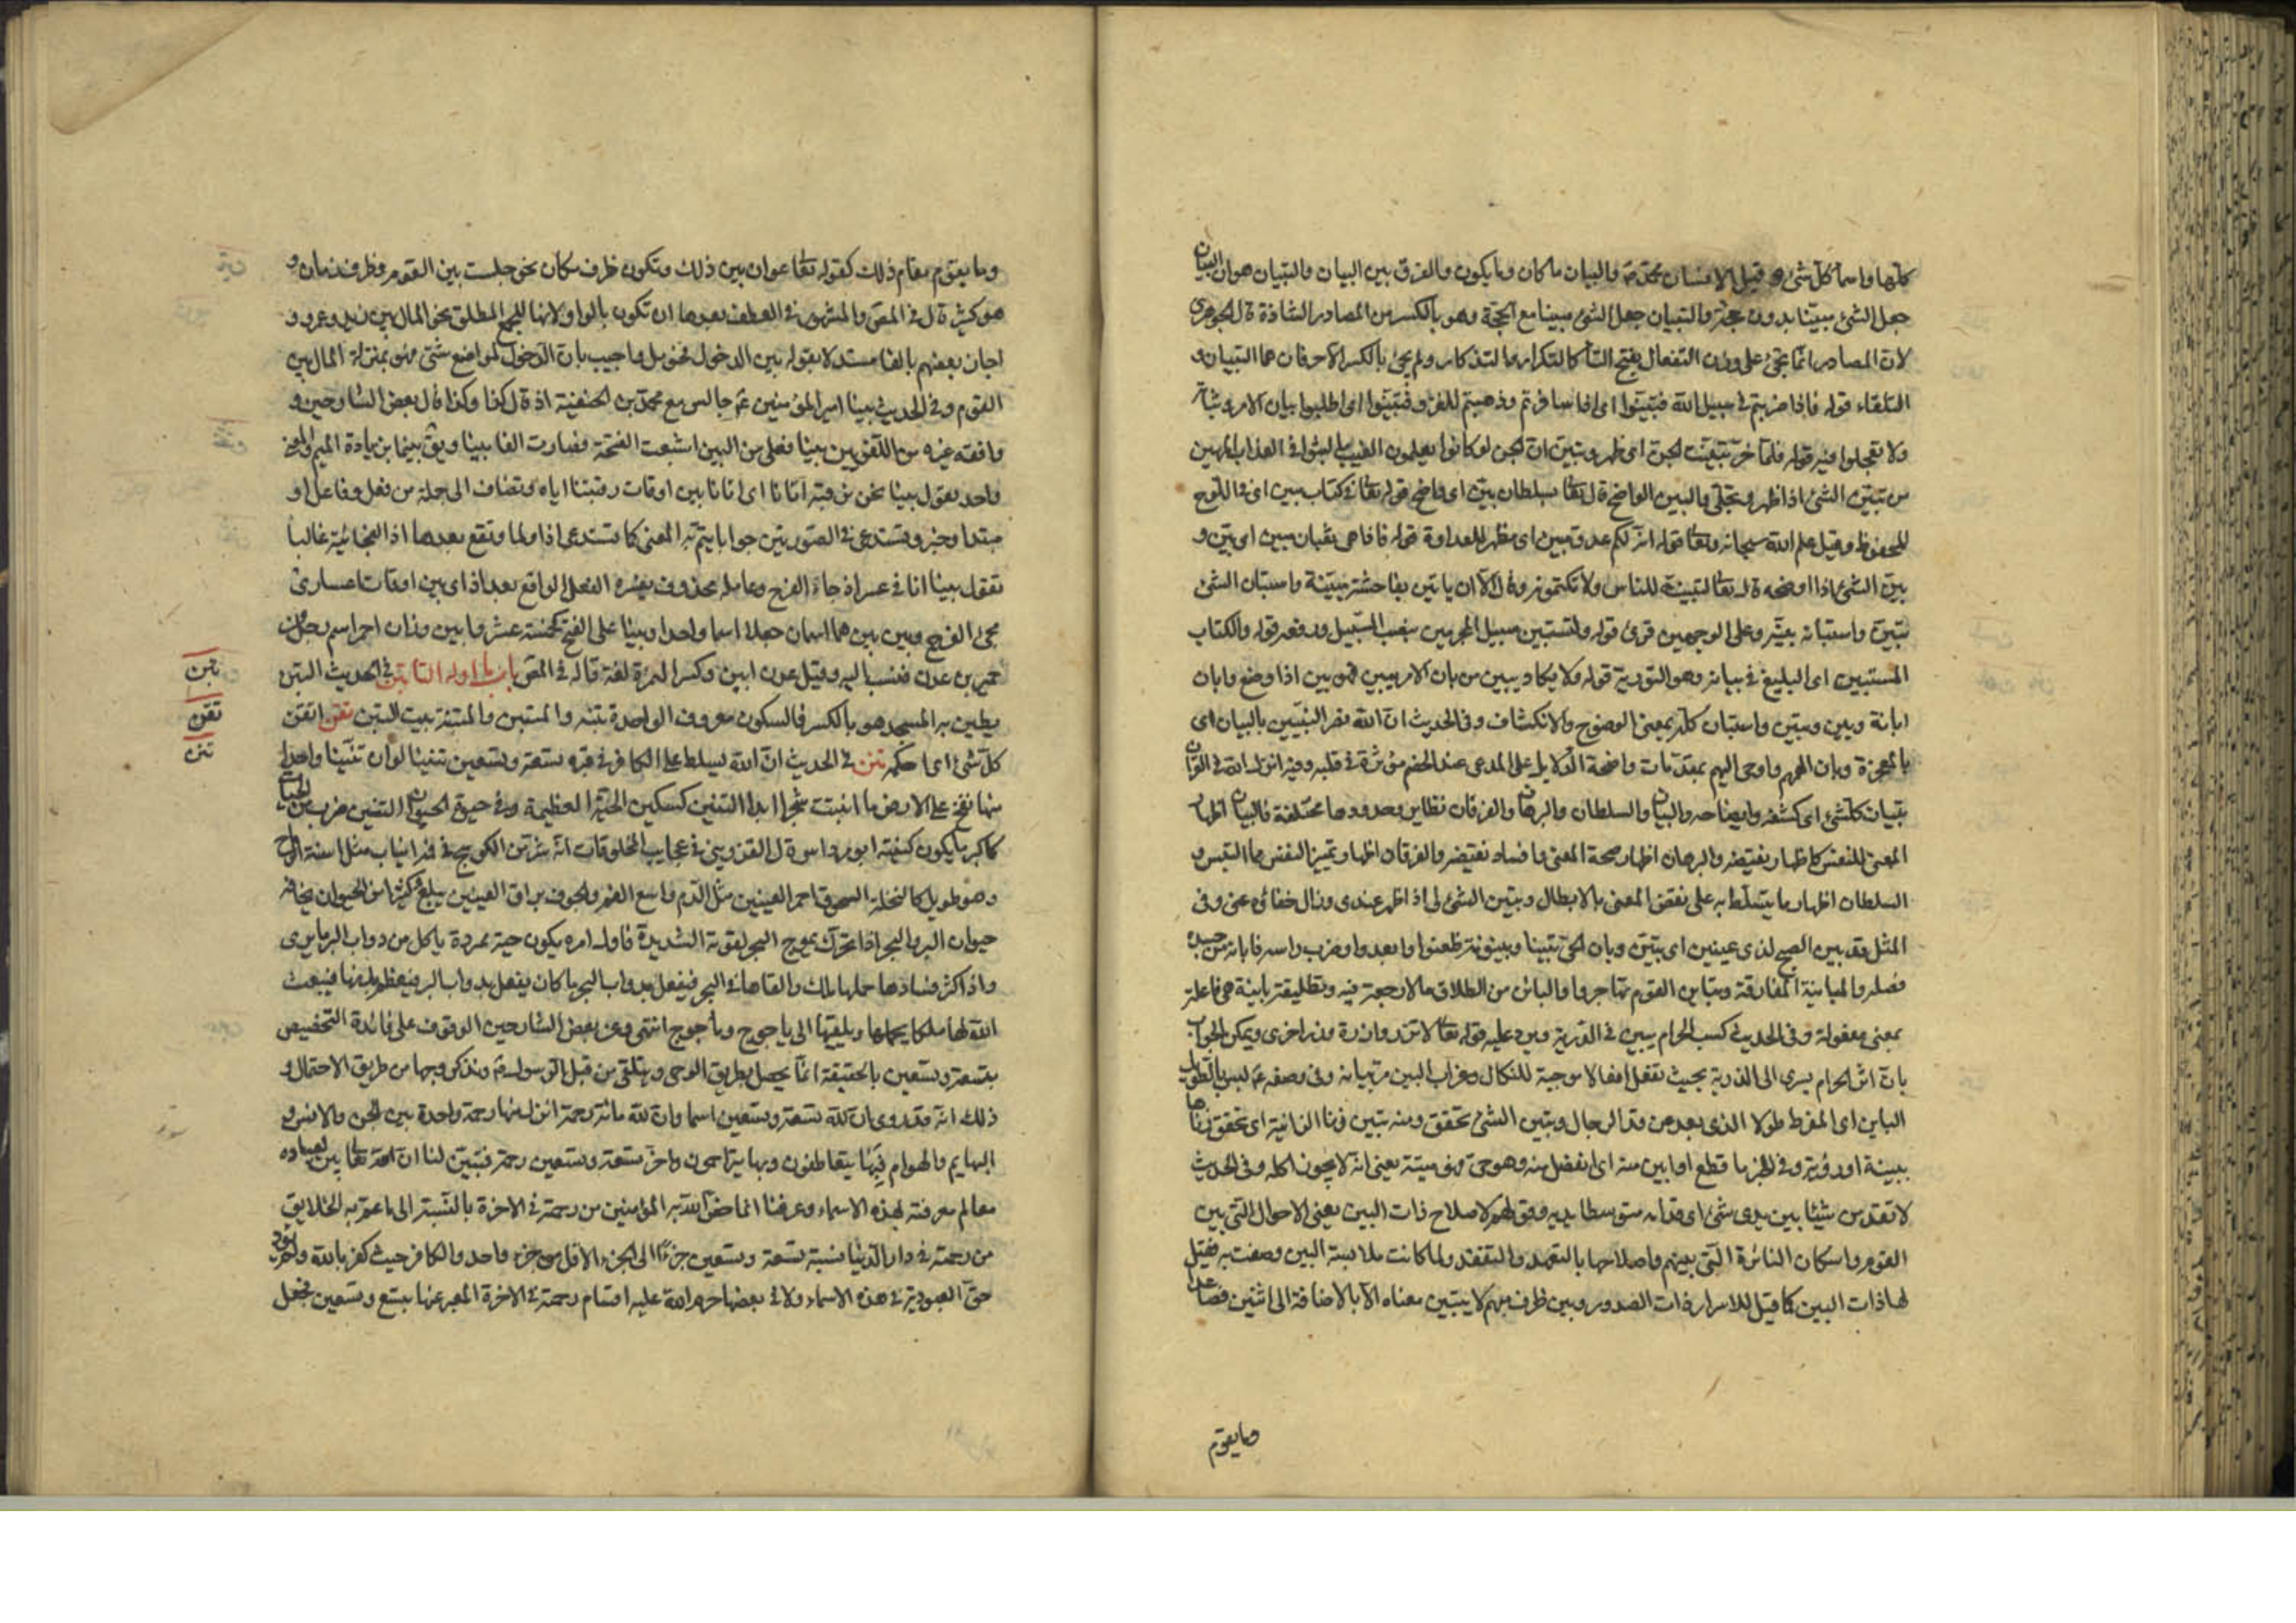 كلها واسماء كل شئ و قيل الانسان محمد ص والبيان ما كان وما يكون والفرق بين البيان والتبيان هو ان البيان
جعل الشئ مبينا بدون حجة والتبيان جعل الشئ مبينا مع الحجة وهو بالكسر من المصادر الشاذة قال الجوهري
لان المصادر انما تجئ على وزن التفعال بفتح التاء كالتكرار والتذكار ولم يجئ بالكسر الا حرفان هما التبيان و
التلقاء قوله فاذا ضربتم في سبيل الله فتبينوا اى اذا سافرتم وذهبتم للغزو فتبينوا اى اطلبوا بيان الامر وثباته
ولا تعجلوا فيه قوله فلما خر تبينت الجن اى ظهر وتبين ان الجن لو كانوا يعلمون الغيب ما لبثوا في العذاب المهين
من تبين الشئ اذا ظهر وتجلى والبين الواضح قال تعا بسلطان بين اى واضح قوله تعا في كتاب مبين اى في اللوح
المحفوظ وقيل علم الله سبحانه وتعا قوله انه لكم عدو مبين اى مظهر للعداوة قوله فاذا هى ثعبان مبين اى بين و
بين الشئ اذا اوضحه قال تعا لتبيننه للناس ولا تكتمونه وقال الا ان ياتين بفاحشة مبينة واستبان الشئ
تبين واستبانه بينه وعلى الوجهين قرئ قوله ولتستبين سبيل المجرمين بنصب السبيل ورفعه قوله والكتاب
المستبين اى البليغ في بيانه وهو التورية قوله ولا يكاد يبين من بان الامر يبين فهو بين اذا وضح وابان
ابانة وبين وتبين واستبان كله بمعنى الوضوح والانكشاف وفى الحديث ان الله نصر النبيين بالبيان اى
بالمعجزة وبان الهمهم واوحى اليهم بمقدمات واضحة الدلايل على المدعى عند الخصم مؤثرة في قلبه وفيه انزل الله في القران
تبيان كلشئ اى كشفه وايضاحه والبيان والسلطان والبرهان والفرقان نظاير وحدودها مختلفة فالبيان اظهار
المعنى للنفس كاظهار نقيضه والبرهان اظهار صحة المعنى وافساد نقيضه والفرقان اظهار وتميز النفس مما التبس و
السلطان اظهار ما يتسلط به على نقض المعنى بالابطال وتبين الشئ لى اذا ظهر عندى وزال خفائه عنى وفى
المثل قد بين الصبح لذى عينين اى تبين وبان الحى بينا وبينونة ظعنوا وابعدوا وضرب راسه فابانه من جسده
فصله والمباينة المفارقة وتباين القوم تهاجروا والبائن من الطلاق ما لا رجعة فيه وتطليقة باينة هى فاعلة
بمعنى مفعولة وفى الحديث كسب الحرام يبين في الذرية ويرد عليه قوله تعا لا تزر وازرة وزر اخرى ويمكن الجواب
بان اثر الحرام يسرى الى الذرية بحيث تفعل افعالا موجبة للنكال وغراب البين مر بيانه وفى وصفه ع ليس بالطويل
الباين اى المفرط طولا الذى بعد عن قد الرجال وتبين الشئ تحقق ومنه تبين زنا الزانية اى تحقق زناها
ببينة او رؤية وفى الخبر ما قطع او ابين منه اى انفصل منه وهو حى فهو ميتة يعنى انه لا يجوز اكله وفى الحديث
لا تقدمن شيئا بين يدى شئ اى قدامه متوسطا يديه وقولهم لاصلاح ذات البين يعنى الاحوال التى بين
القوم واسكان النائرة التى بينهم واصلاحها بالتعهد والتفقد ولما كانت ملابسة البين وصفت به فقيل
لها ذات البين كما قيل للاسرار ذات الصدور وبين ظرف مبهم لا يتبين معناه الا بالاضافة الى اثنين فصاعدا
وما يقوم
وما يقوم مقام ذلك كقوله تعا عوان بين ذلك وتكون ظرف مكان نحو جلست بين القوم وظرف زمان و
هو كثير قال في المص والمشهور في العطف بعدها ان تكون بالواو لانها للجمع المطلق نحو المال بين زيد وعمرو و
اجاز بعضهم بالفا مستدلا بقوله بين الدخول فحومل واجيب بان الدخول لمواضع شتى فهو بمنزلة المال بين
القوم وفى الحديث بينا امير المؤمنين ع جالس مع محمد بن الحنفية اذ قال كذا وكذا قال بعض الشارحين و
وافقه غيره من اللغويين بينا فعلى من البين اشبعت الفتحة فصارت الفا بينا ويق بينما بزيادة الميم والمعنى
واحد يقول بينا نحن نرقبه اتانا اى اتانا بين اوقات رقبتنا اياه وتضاف الى جملة من فعل وفاعل او
مبتدا وخبر وتستدعى في الصورتين جوابا يتم به المعنى كما تستدعى اذا ولما وتقع بعدها اذا الفجائية غالبا
تقول بينا انا في عسر اذ جاء الفرج وعامله محذوف يفسره الفعل الواقع بعد اذ اى بين اوقات اعسارى
مجئ الفرج وبين بين هما اسمان جعلا اسما واحدا وبنيا على الفتح كخمسة عشر وابين وزان احمر اسم رجل من
حمير بن عدن فنسب اليه وقيل عدن ابين وكسر الهمزة لغة قاله في المص باب ما اوله التاء تبن في الحديث التبن
يطين به المسجد هو بالكسر فالسكون معروف الواحدة تبنه والمتبن والمتبنة بيت التبن تقن اتقن
كل شئ اى احكم تنن في الحديث ان الله ليسلط على الكافر في قبره تسعة وتسعين تنينا لو ان تنينا واحدا
منها نفخ على الارض ما انبتت شجرا ابدا التنين كسكين الحية العظيمة وفى حيوة الحيوان التنين ضرب من الحيات
كاكبر ما يكون كنيته ابو مرداس قال القزوينى في عجايب المخلوقات انه شر من الكوسج في فمه انياب مثل اسنة الرماح
وهو طويل كالنخلة السحوق احمر العينين مثل الدم واسع الفم والجوف براق العينين يبلع كثيرا من الحيوان يخافه
حيوان البر والبحر اذا تحرك يموج البحر لقوته الشديدة فاول امره يكون حية متمردة ياكل من دواب البر ما يرى
واذا كثر فسادها حملها ملك والقاها في البحر فيفعل بدواب البحر ما كان يفعل بدواب البر فيعظم بدنها فيبعث
الله لها ملكا يحملها ويلقيها الى ياجوج وماجوج انتهى وعن بعض الشارحين الوقوف على فائدة التخصيص
بتسعة وتسعين بالحقيقة انما يحصل بطريق الوحى ويتلقى من قبل الرسول ص ونذكر وجها من طريق الاحتمال و
ذلك انه قد روى ان لله تسعة وتسعين اسما وان لله مائة رحمة انزل منها رحمة واحدة بين الجن والانس و
البهايم والهوام فبها يتعاطفون وبها يتراحمون واخر تسعة وتسعين رحمة فتبين لنا ان الله تعا بين لعباده
معالم معرفته لهذه الاسماء وعرفنا ان ما خص الله به المؤمنين من رحمته في الاخرة بالنسبة الى ما عم به الخلايق
من رحمته في دار الدنيا نسبة تسعة وتسعين جزءا الى الجزء الاقل وهو جزء واحد والكافر حيث كفر بالله ولم يؤد
حق العبودية في هذه الاسماء ولا في بعضها حرم الله عليه اقسام رحمته في الاخرة المعبر عنها بتسع وتسعين فجعل
تبن
تقن
تنن